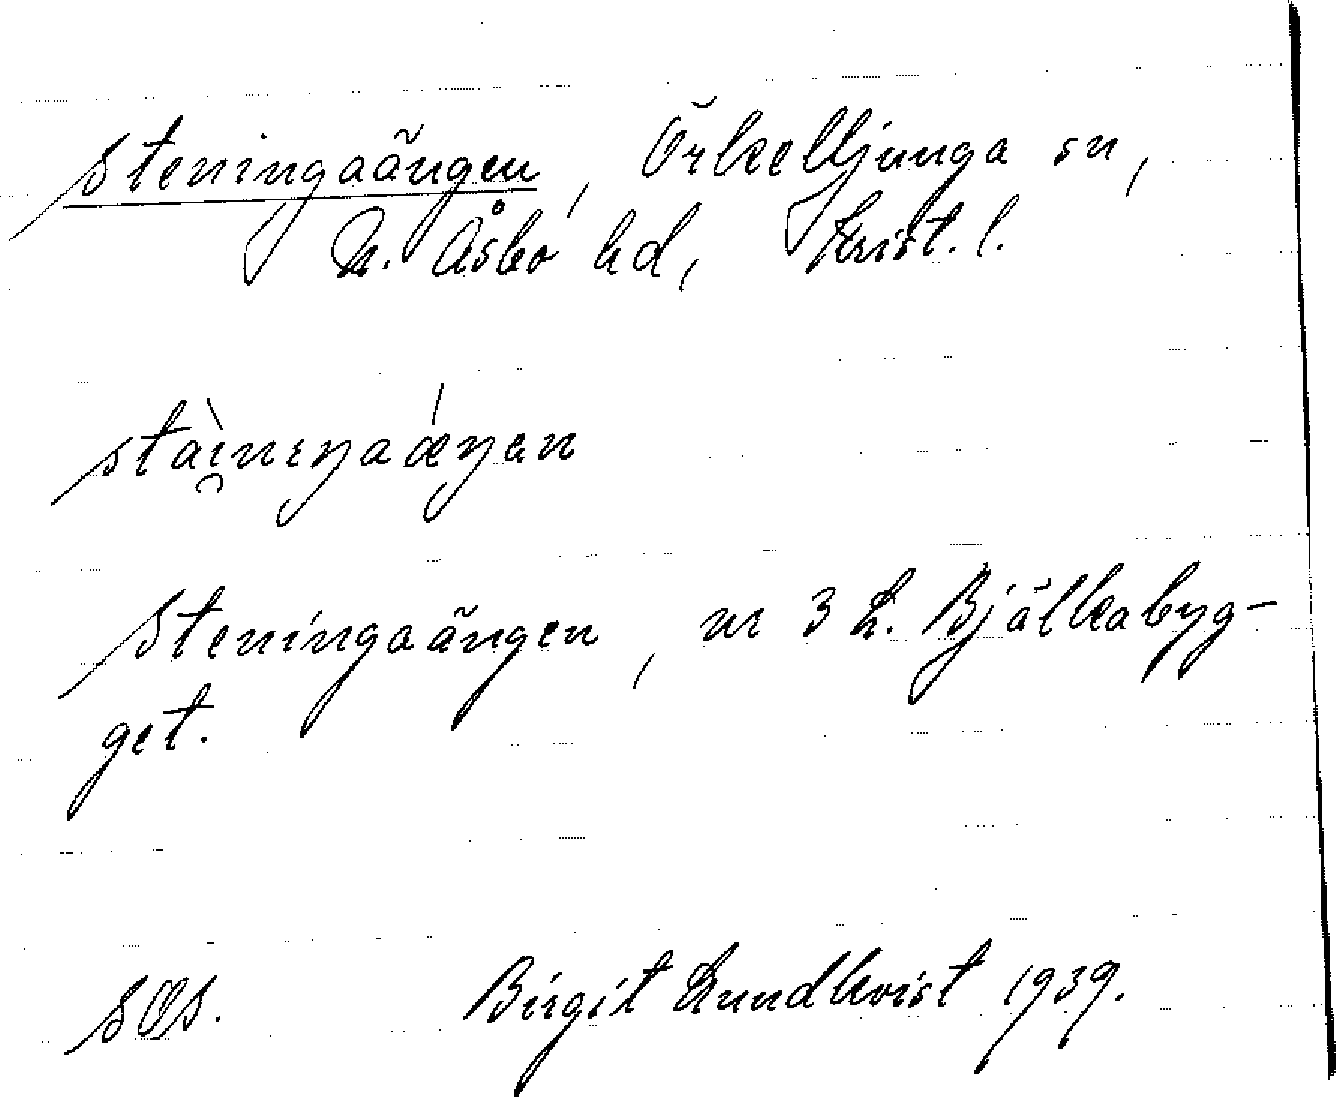 Steningaängen, Örkelljunga sn,
N. Åsbo hd, Krist. l.
stài̯nıŋaǽŋen
Steningaängen, nr 3 L. Bjälkabyg-
get.
SOS. Birgit Lundkvist 1939.